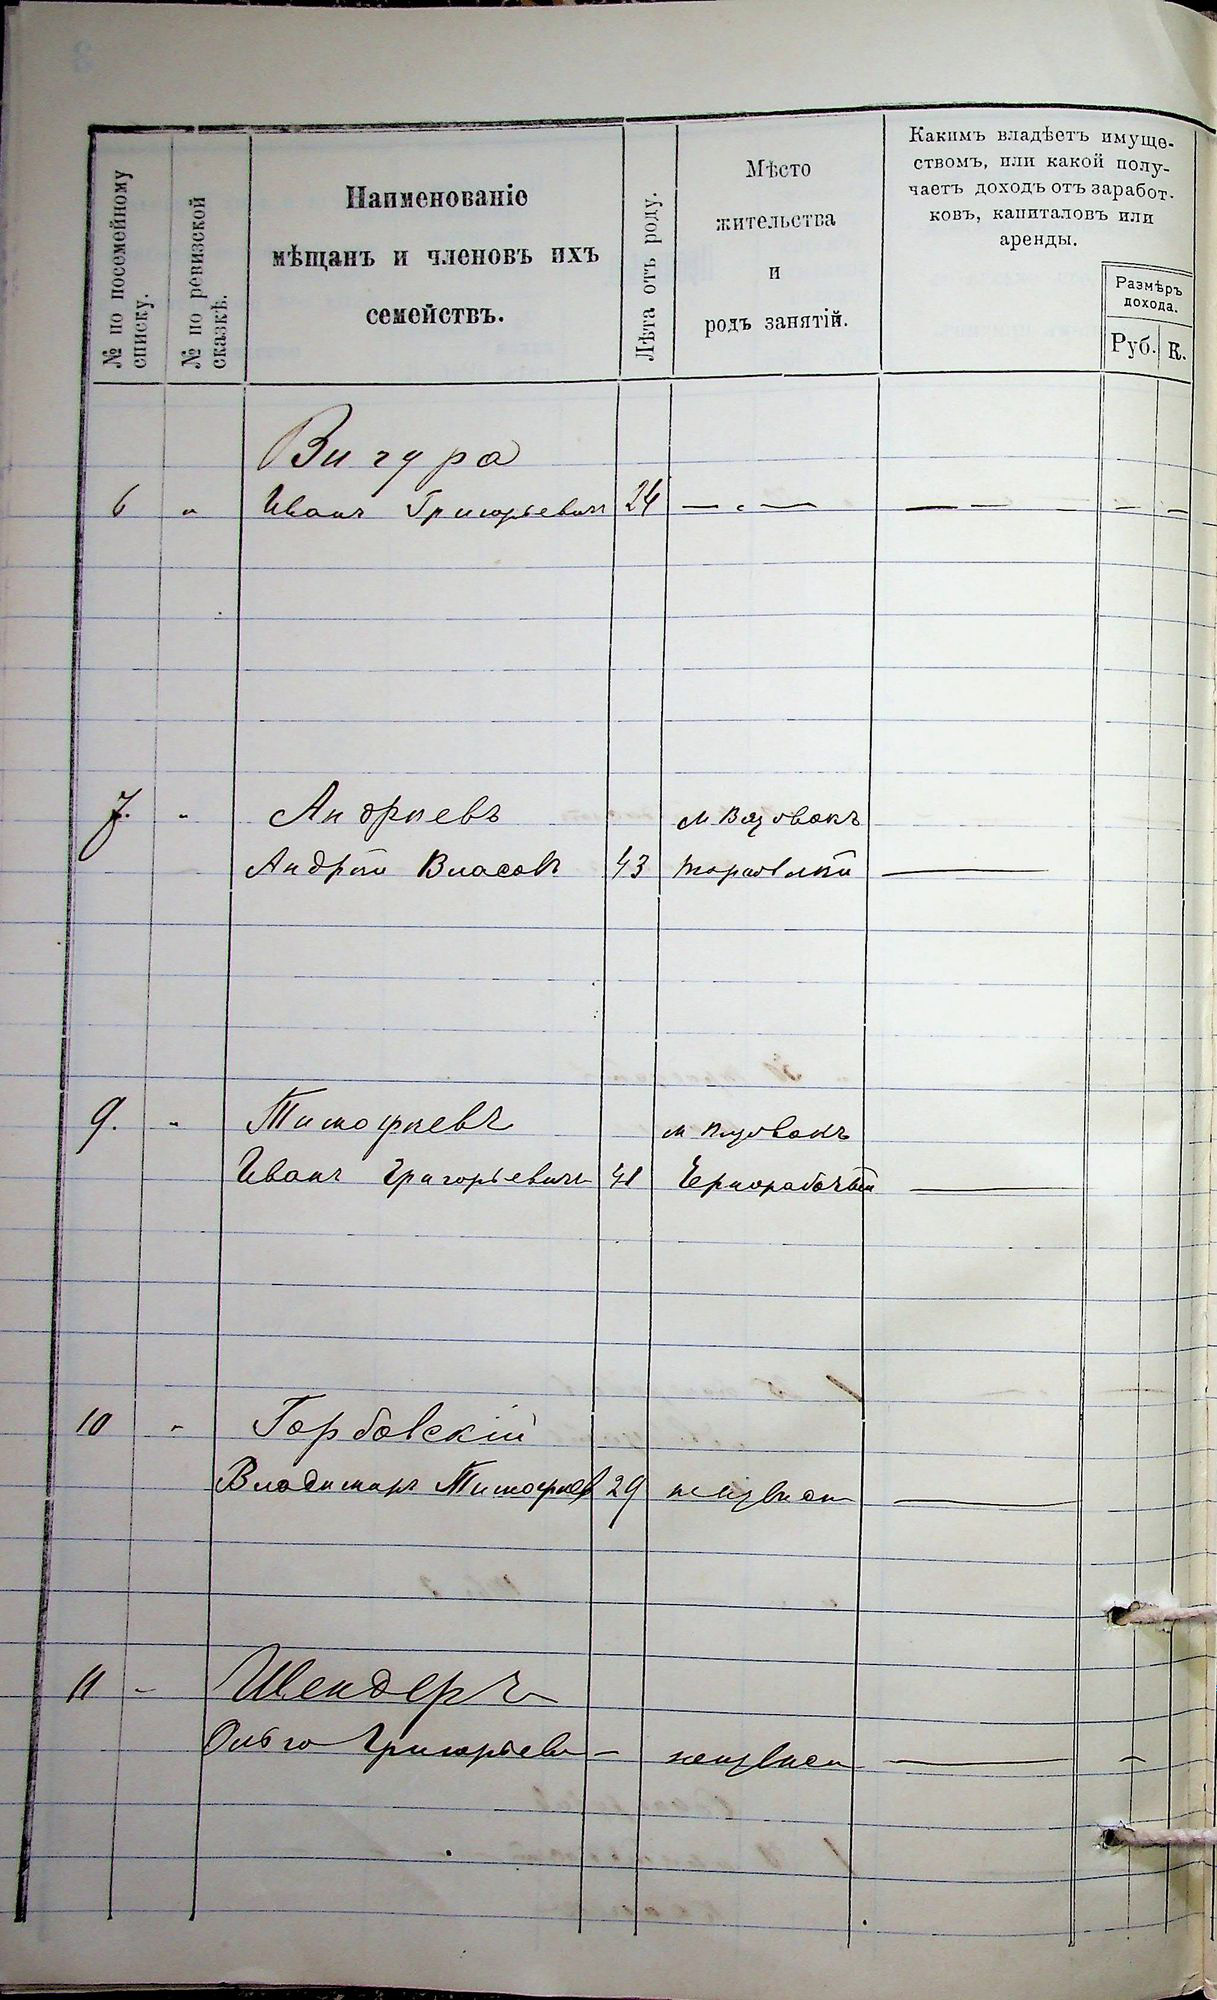 № по посемейному списку.
№ по ревизской сказкѣ.
Наименованіе
мѣщанъ и членовъ ихъ
семействъ.
Лѣта отъ роду.
Мѣсто
жительства
и
родъ занятій.
Какимъ владѣетъ имуще-
ствомъ, или какой полу-
чаетъ доходъ отъ заработ-
ковъ, капиталовъ или
аренды.
Размѣръ
дохода.
Руб. К.
Вигура
6 " Иванъ Григорьевичъ 24 — " — — — — — —
7. " Андреевъ м Вязовокъ
Андрей Власовъ 43 торговля —
9. " Тимофѣевъ м Вязовокъ
Иванъ Григорьевичъ 41 Чернорабочій —
10 " Горбовскій
Владимиръ Тимофѣев 29 неизвѣсн —
11 - Шендеръ
Ольга Григорьева — неизвѣсн — —